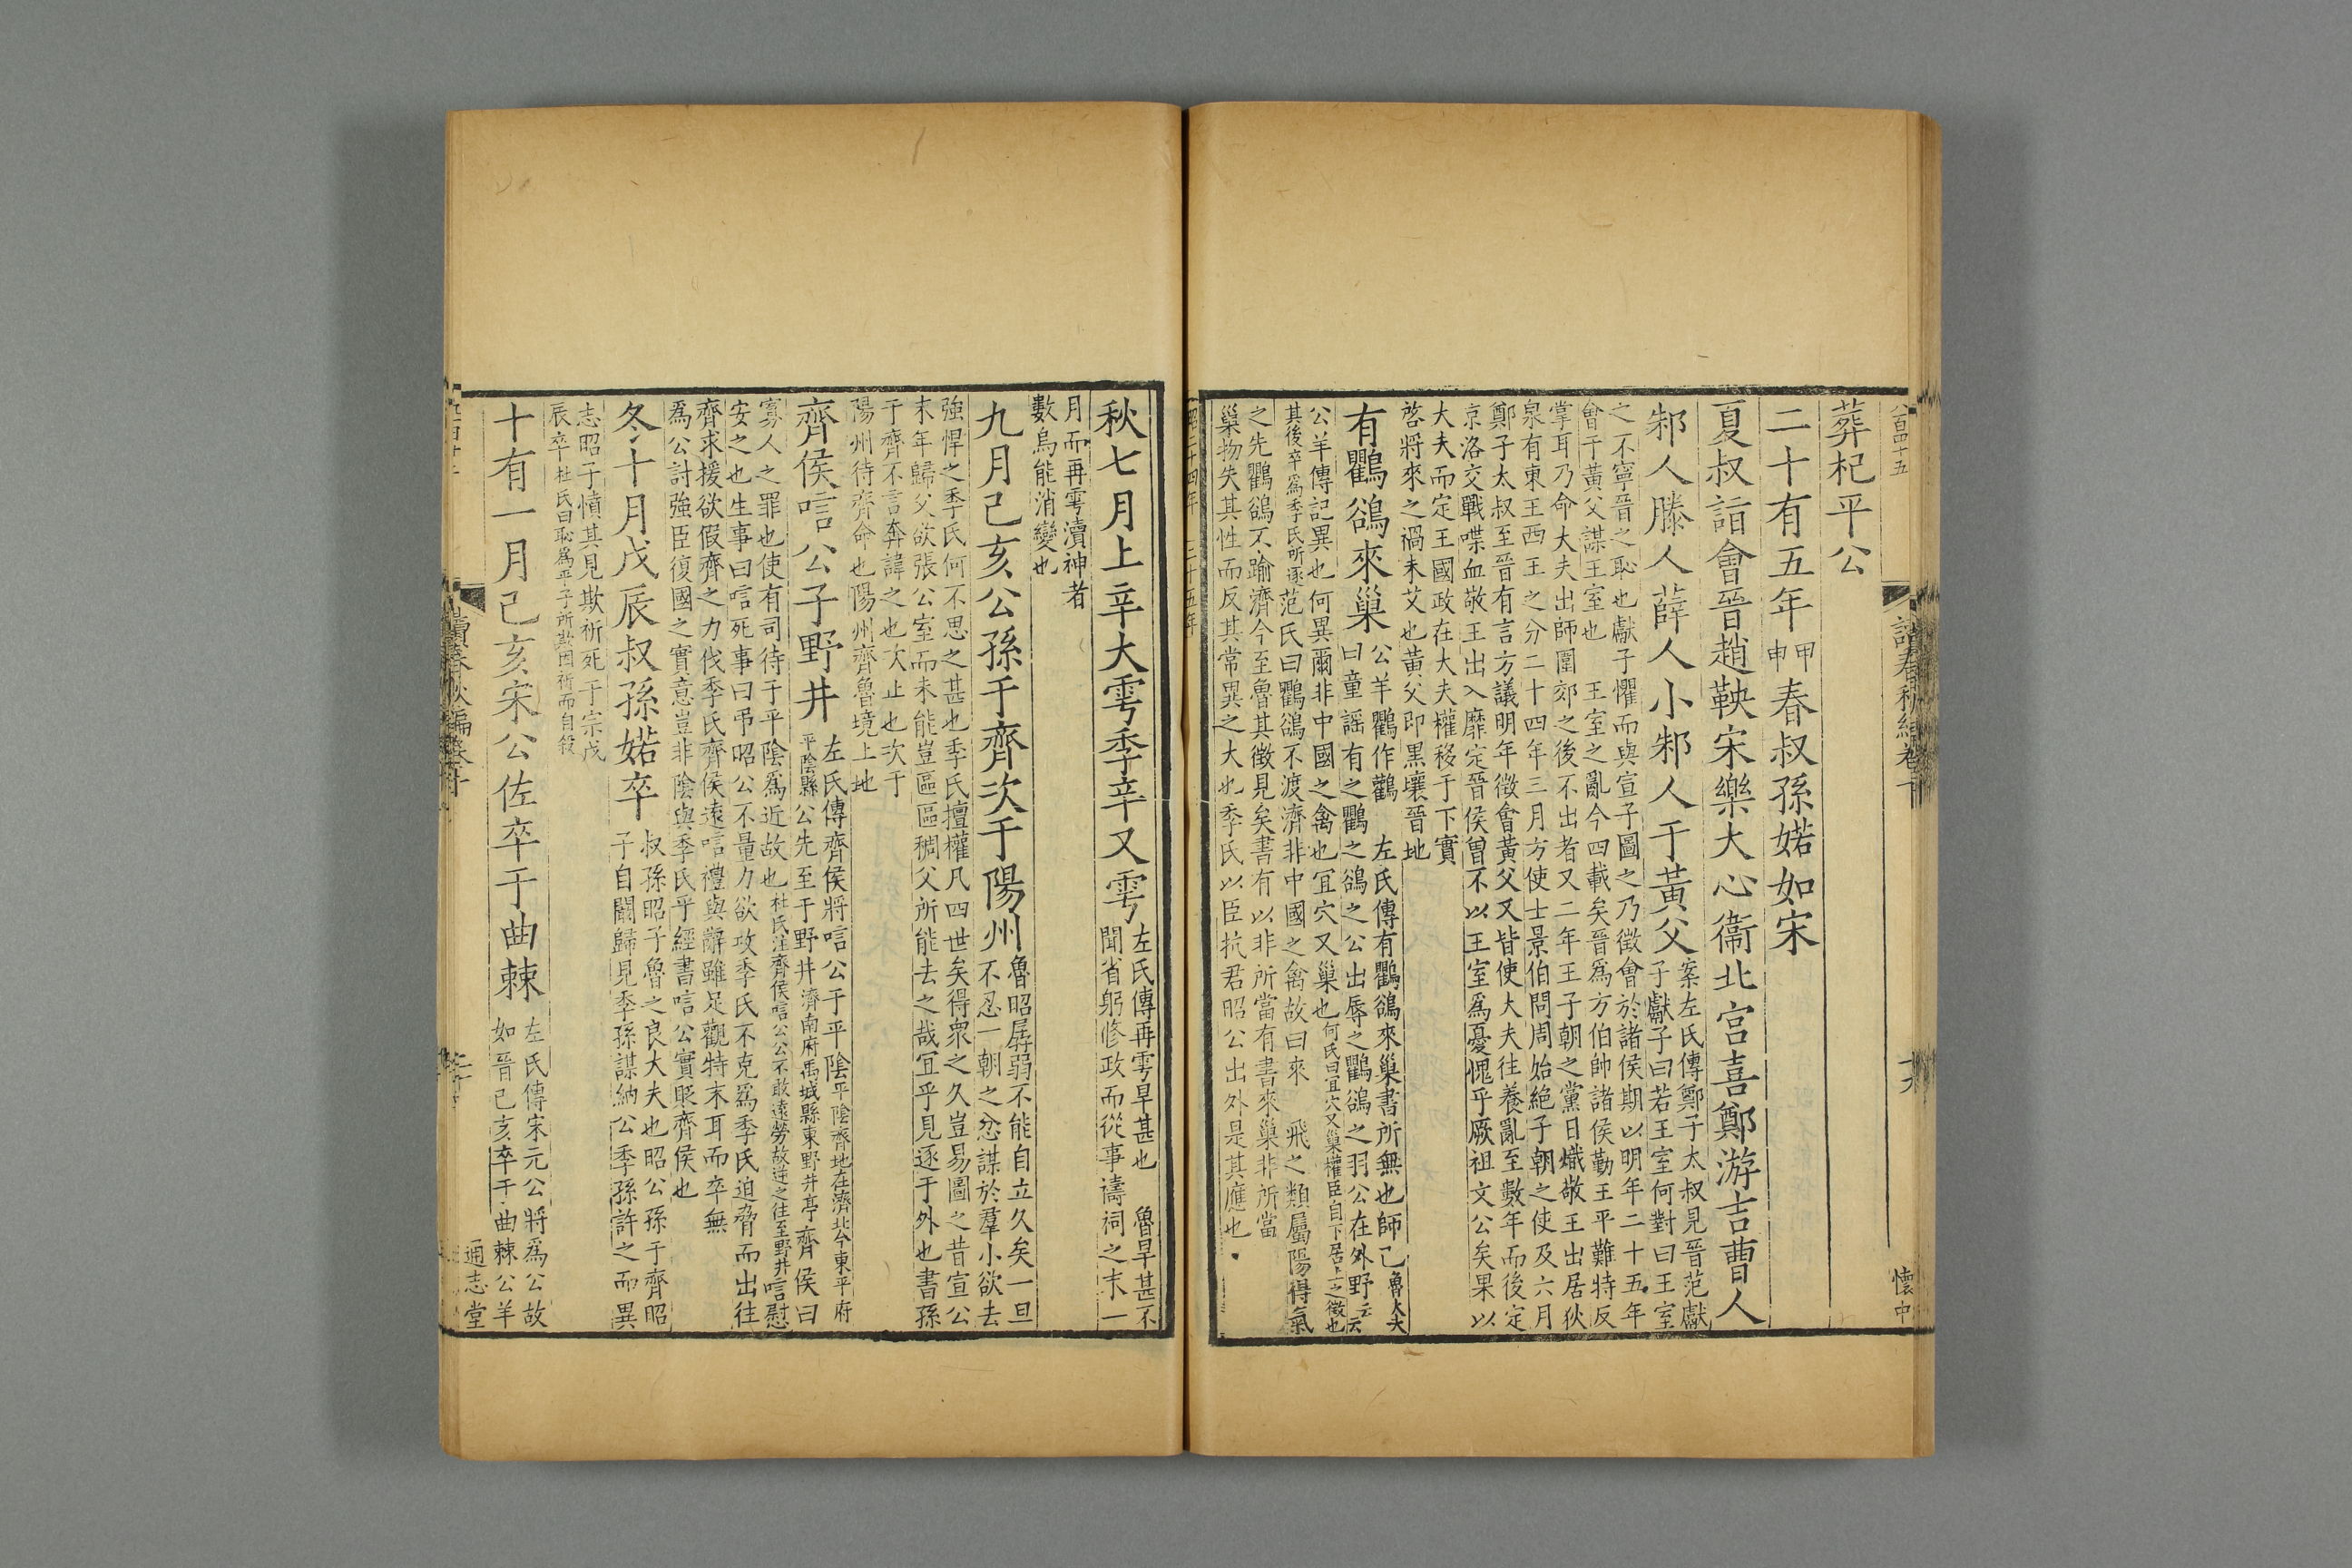 葬杞平公
二十有五年甲申春叔孫婼如宋
夏叔詣會晉趙鞅宋樂大心衞北宮喜鄭游吉曹人
邾人滕人薛人小邾人于黃父
案左氏傳鄭子太叔見晉范獻
子獻子曰若王室何對曰王室
之不寧晉之恥也獻子懼而與宣子圖之乃徵會於諸侯期以明年二十五年
會于黃父謀王室也 王室之亂今四載矣晉爲方伯帥諸侯勤王平難特反
掌耳乃命大夫出師圍郊之後不出者又二年王子朝之黨日熾敬王出居狄
泉有東王西王之分二十四年三月方使士景伯問周始絕子朝之使及六月
鄭子太叔至晉有言方議明年徵會黃父又皆使大夫往養亂至數年而後定
京洛交戰喋血敬王出入靡定晉侯曽不以王室爲憂愧乎厥祖文公矣果以
大夫而定王國政在大夫權移于下實
啓將來之禍未艾也黃父即黑壤晉地
有鸜鵒來巢
公羊鸜作鸛 左氏傳有鸜鵒來巢書所無也師己魯大夫
曰童謡有之鸜之鵒之公出辱之鸜鵒之羽公在外野云云
公羊傳記異也何異爾非中國之禽也冝穴又巢也何氏曰冝穴又巢權臣自下居上之徵也
其後卒爲季氏所逐范氏曰鸜鵒不渡濟非中國之禽故曰來 飛之類屬陽得氣
之先鸜鵒不踰濟今至魯其徵見矣書有以非所當有書來巢非所當
巢物失其性而反其常異之大也季氏以臣抗君昭公出外是其應也
昭二十四年 二十五年
秋七月上辛大雩季辛又雩
左氏傳再雩旱甚也 魯旱甚不
聞省躬修政而從事禱祠之末一
月而再雩瀆神者
數烏能消變也
九月己亥公孫于齊次于陽州
魯昭孱弱不能自立久矣一旦
不忍一朝之忿謀於羣小欲去
強悍之季氏何不思之甚也季氏擅權凡四世矣得衆之久豈易圖之昔宣公
末年歸父欲張公室而未能豈區區稠父所能去之哉冝乎見逐于外也書孫
于齊不言奔諱之也次止也次于
陽州待齊命也陽州齊魯境上地
齊侯唁公于野井
左氏傳齊侯將唁公于平陰平陰齊地在濟北今東平府
平陰縣公先至于野井濟南府禹城縣東野井亭齊侯曰
寡人之罪也使有司待于平陰爲近故也杜氏注齊侯唁公公不敢遠勞故逆之往至野井唁慰
安之也生事曰唁死事曰弔昭公不量力欲攻季氏不克爲季氏迫脅而出往
齊求援欲假齊之力伐季氏齊侯遠唁禮與辭雖足觀特末耳而卒無
爲公討強臣復國之實意豈非陰與季氏乎經書唁公實貶齊侯也
冬十月戊辰叔孫婼卒
叔孫昭子魯之良大夫也昭公孫于齊昭
子自闞歸見季孫謀納公季孫許之而異
志昭子憤其見欺祈死于宗戊
辰卒杜氏曰恥爲平子所欺因祈而自殺
十有一月己亥宋公佐卒于曲棘
左氏傳宋元公將爲公故
如晉己亥卒于曲棘公羊
通志堂